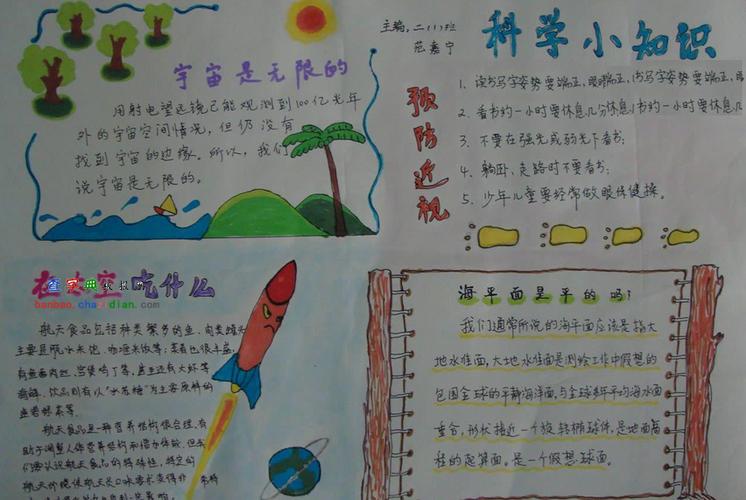 主编:二(1)班
范嘉宁
科学小知识
宇宙是无限的
用射电望远镜已能观测到100亿光年
外的宇宙空间情况,但仍没有
找到宇宙的边缘。所以,我们
说宇宙是无限的。
预防近视
1、读书写字姿势要端正,眼睛端正,书写字姿势要端正,眼
2、看书约一小时要休息几分休息书约一小时要休息几
3、不要在强光或弱光下看书;
4、躺卧、走路时不要看书;
5、少年儿童要经常做眼保健操。
在太空吃什么
查字典
banbao.chazidian.com
航天食品包括种类繁多的鱼、肉类罐头
主要是
咖喱米饭等;菜肴也很丰盛,
有鱼香肉丝、宫保鸡丁等,
还有大虾等
海鲜、饮品则有以
为主要原料的
等。
航天食品是一种营养结构很合理,有
海平面是平的吗?
我们通常所说的海平面应该是指大
地水准面,大地水准面是测绘工作中假想的
包围全球的平静海洋面,与全球多年平均海水面
重合,形状接近一个旋转椭球体,是地面高
程的起算面,是一个假想球面。